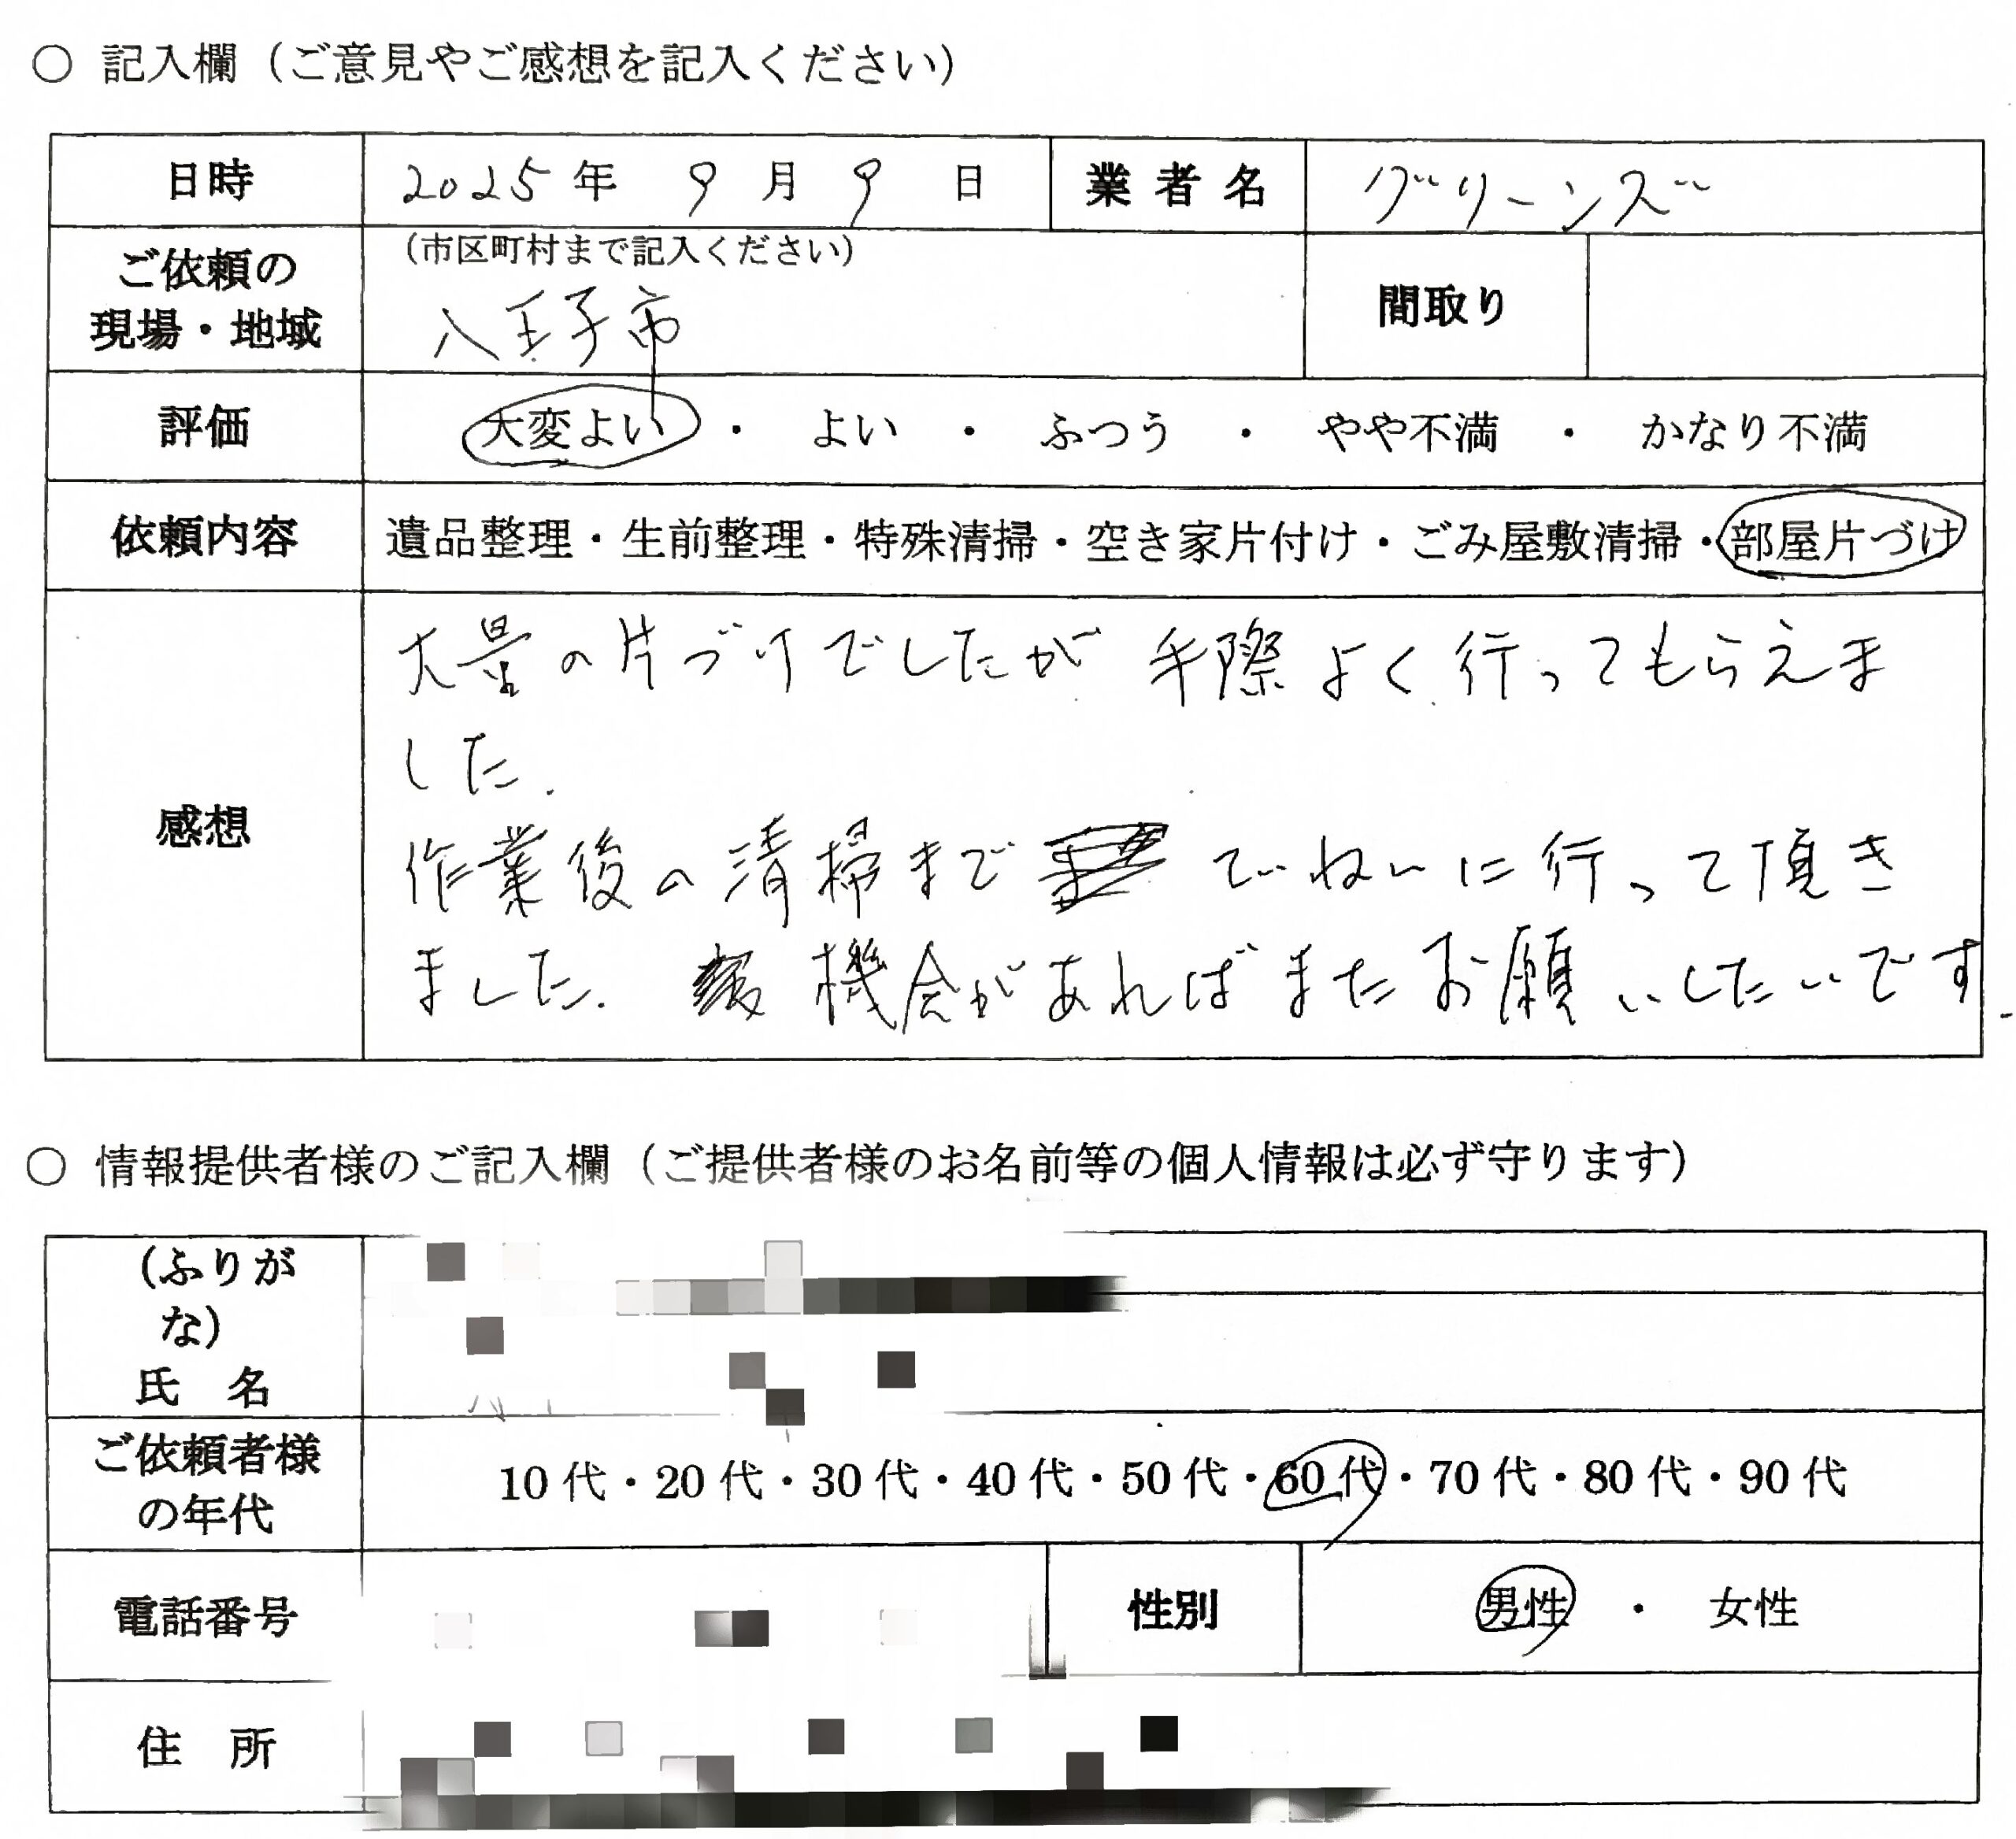 ○ 記入欄（ご意見やご感想を記入ください）
日時 2025年 9月 9日 業者名 グリーンズ
ご依頼の現場・地域 （市区町村まで記入ください） 八王子市 間取り
評価 大変よい ・ よい ・ ふつう ・ やや不満 ・ かなり不満
依頼内容 遺品整理・生前整理・特殊清掃・空き家片付け・ごみ屋敷清掃・部屋片づけ
感想
大量の片づけでしたが 手際よく行ってもらえま
した.
作業後の清掃まで ていねいに行って頂き
ました. 機会があればまたお願いしたいです.
○ 情報提供者様のご記入欄（ご提供者様のお名前等の個人情報は必ず守ります）
（ふりが
な）
氏 名
ご依頼者様
の年代 10代・20代・30代・40代・50代・60代・70代・80代・90代
電話番号 性別 男性 ・ 女性
住 所